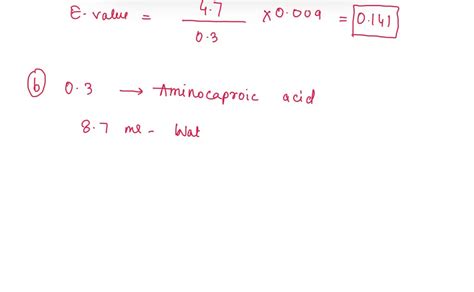 E. value = 4.7 / 0.3 × 0.009 = 0.141
(b) 0.3 → Aminocaproic acid
8.7 ml - Wat